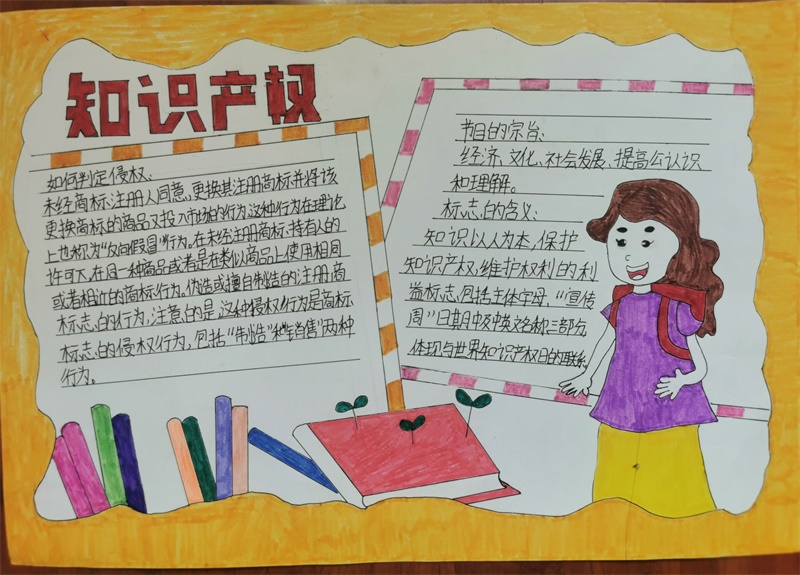 知识产权
如何判定侵权、
未经商标、注册人同意,更换其注册商标并将该
更换商标的商品又投入市场的行为,这种行为在理论
上也称为“反向假冒”行为。在未经注册商标、持有人的
许可下,在同一种商品或者是在类似商品上使用相同
或者相近的商标行为。伪造或擅自制造的注册商
标标志的行为,注意的是,这种侵权行为是商标
标志的侵权行为,包括“制造”和“销售”两种
行为。
节目的宗旨、
经济、文化、社会发展、提高公认识
和理解。
标志的含义、
知识以人为本,保护
知识产权,维护权利的利
益标志,包括主体字母,“宣传
周”日期中英文名称三部分
体现与世界知识产权日的联系